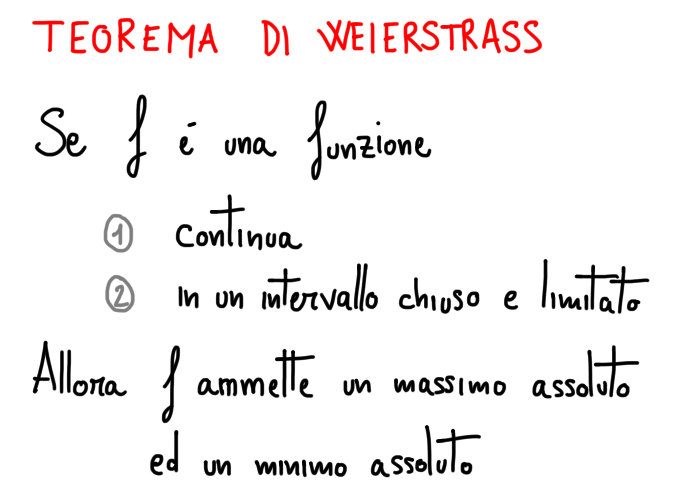 TEOREMA DI WEIERSTRASS
Se f é una funzione
① continua
② in un intervallo chiuso e limitato
Allora f ammette un massimo assoluto
ed un minimo assoluto